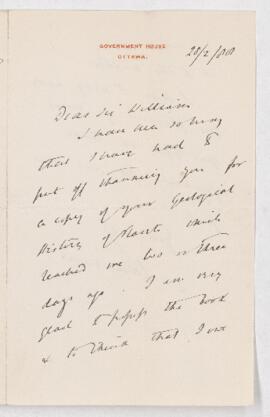 GOVERNMENT HOUSE
OTTAWA.
28/2/88
Dear Sir William
I have been so busy
that I have had to
put off thanking you for
a copy of your Geological
History of Plants which
reached me two or three
days ago. I am very
glad to possess the book
& to think that I owe